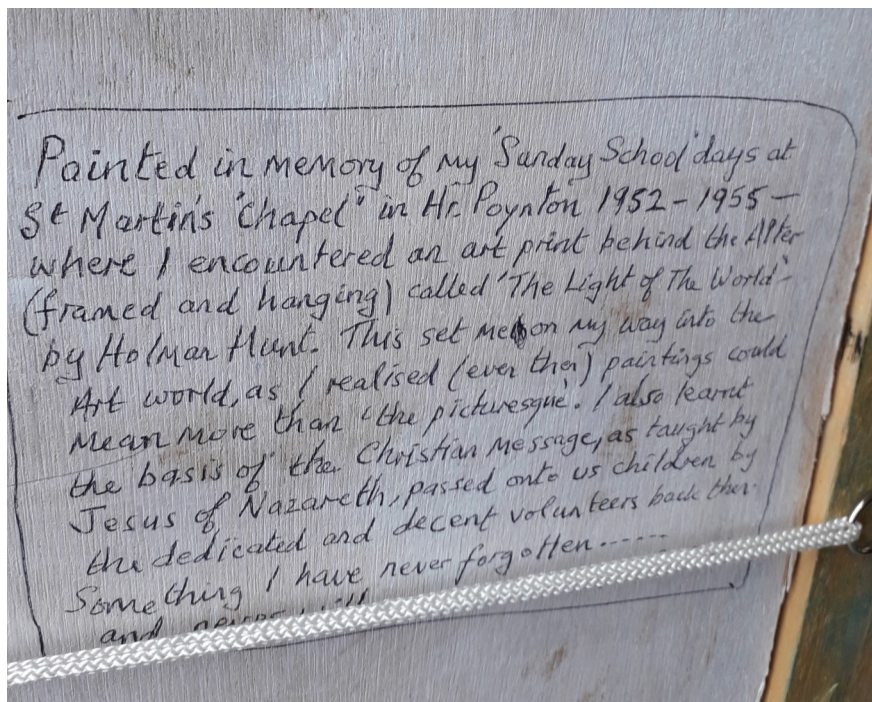 Painted in memory of my 'Sunday School' days at
St Martin's 'Chapel' in Hr. Poynton 1952 - 1955 -
where I encountered an art print behind the Alter
(framed and hanging) called 'The Light of The World' -
by Holman Hunt. This set me on my way into the
Art world, as I realised (even then) paintings could
mean more than 'the picturesque'. I also learnt
the basis of the Christian message, as taught by
Jesus of Nazareth, passed onto us children by
the dedicated and decent volunteers back then.
Something I have never forgotten......
and never will